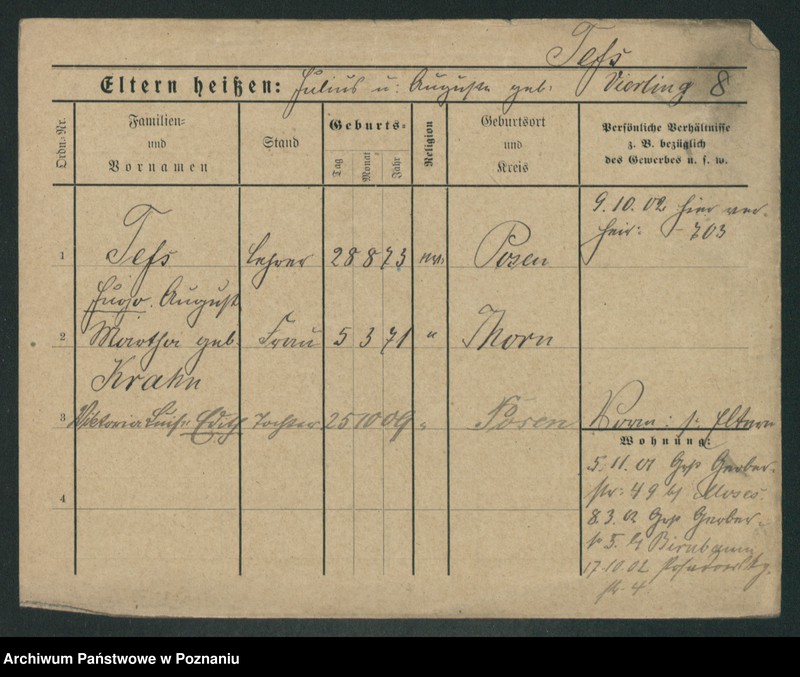 Tefs
Eltern heißen: Julius u: Auguste geb: Vierling 8
Ordn.-Nr.
Familien- und Vornamen
Stand
Geburts-
Tag
Monat
Jahr
Religion
Geburtsort und Kreis
Persönliche Verhältnisse
z. B. bezüglich
des Gewerbes u. s. w.
9.10.02 hier ver-
heir: - 703
1 Tefs Lehrer 28 8 73 ev. Posen
Hugo August
2 Martha geb. Frau 5 3 71 " Thorn
Krahn
3 Viktoria Luise Edith Tochter 25 10 09 " Posen
Vorm: s: Eltern
Wohnung:
5.11.01 Gerber-
str: 49 Moses
8.3.02 Gerber-
5. Birnbaum
17.10.02
4
4